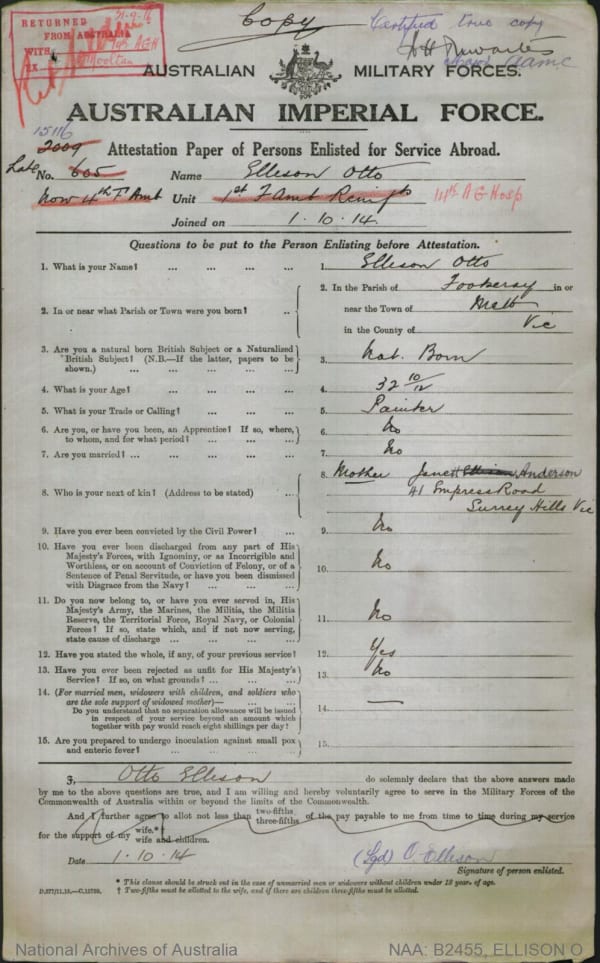 Copy
Certified true copy
RETURNED
FROM AUSTRALIA
WITH
EX
Mooltan
31-9-16
Major AAMC
AUSTRALIAN MILITARY FORCES.
AUSTRALIAN IMPERIAL FORCE.
15116
2009 Attestation Paper of Persons Enlisted for Service Abroad.
Late No. 605 Name Ellison Otto
Now 4th F Amb Unit 1st F Amb Reinfts 14th A G Hosp
Joined on 1.10.14.
Questions to be put to the Person Enlisting before Attestation.
1. What is your Name? ... ... ... ... 1. Ellison Otto
2. In or near what Parish or Town were you born? .. 2. In the Parish of in or
near the Town of
in the County of Vic
3. Are you a natural born British Subject or a Naturalized
British Subject? (N.B.—If the latter, papers to be
shown.) ... ... ... ... 3. Nat. Born
4. What is your Age? ... ... ... ... 4. 32 10/12
5. What is your Trade or Calling? ... ... ... 5. Painter
6. Are you, or have you been, an Apprentice? If so, where,
to whom, and for what period? ... ... ... 6. No
7. Are you married? ... ... ... ... 7. No
8. Who is your next of kin? (Address to be stated) ... 8. Mother Janet Ellison Anderson
41 Empress Road
Surrey Hills Vic
9. Have you ever been convicted by the Civil Power? ... 9. No
10. Have you ever been discharged from any part of His
Majesty's Forces, with Ignominy, or as Incorrigible and
Worthless, or on account of Conviction of Felony, or of a
Sentence of Penal Servitude, or have you been dismissed
with Disgrace from the Navy? ... ... ... 10. No
11. Do you now belong to, or have you ever served in, His
Majesty's Army, the Marines, the Militia, the Militia
Reserve, the Territorial Force, Royal Navy, or Colonial
Forces? If so, state which, and if not now serving,
state cause of discharge ... ... ... 11. No
12. Have you stated the whole, if any, of your previous service? 12. Yes
13. Have you ever been rejected as unfit for His Majesty's
Service? If so, on what grounds? ... ... ... 13. No
14. (For married men, widowers with children, and soldiers who
are the sole support of widowed mother)—
Do you understand that no separation allowance will be issued
in respect of your service beyond an amount which
together with pay would reach eight shillings per day? 14. —
15. Are you prepared to undergo inoculation against small pox
and enteric fever? ... ... ... ... 15.
I, Otto Ellison do solemnly declare that the above answers made
by me to the above questions are true, and I am willing and hereby voluntarily agree to serve in the Military Forces of the
Commonwealth of Australia within or beyond the limits of the Commonwealth.
And I further agree to allot not less than two-fifths three-fifths of the pay payable to me from time to time during my service
for the support of my wife.* wife and children.
Date 1.10.14 (Sgd) O. Ellison
Signature of person enlisted.
* This clause should be struck out in the case of unmarried men or widowers without children under 18 year of age.
† Two-fifths must be allotted to the wife, and if there are children three-fifths must be allotted.
National Archives of Australia NAA: B2455, ELLISON O